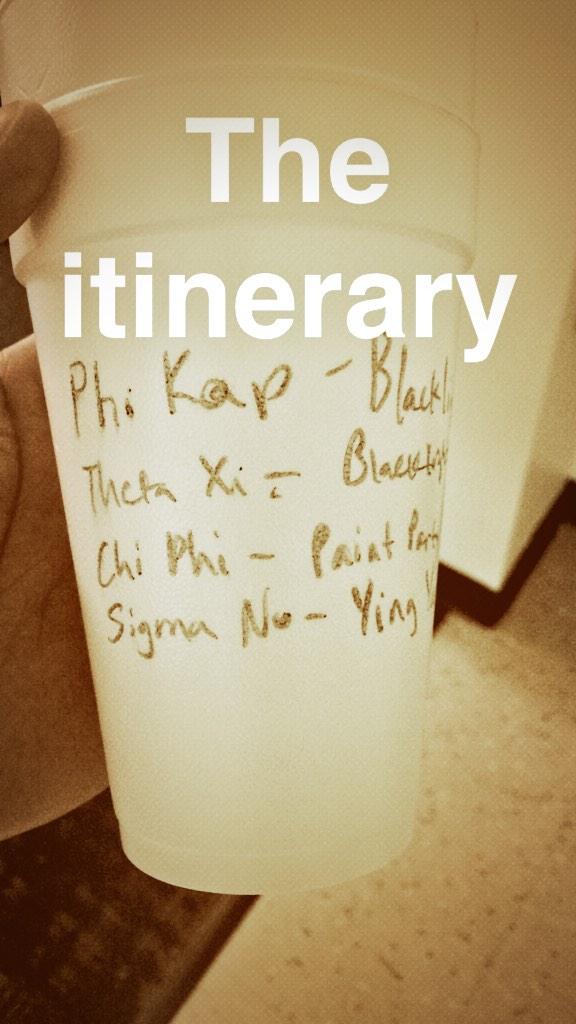 The
itinerary
Phi Kap - Blackli
Theta Xi - Blacklig
Chi Phi - Paint Part
Sigma Nu - Ying